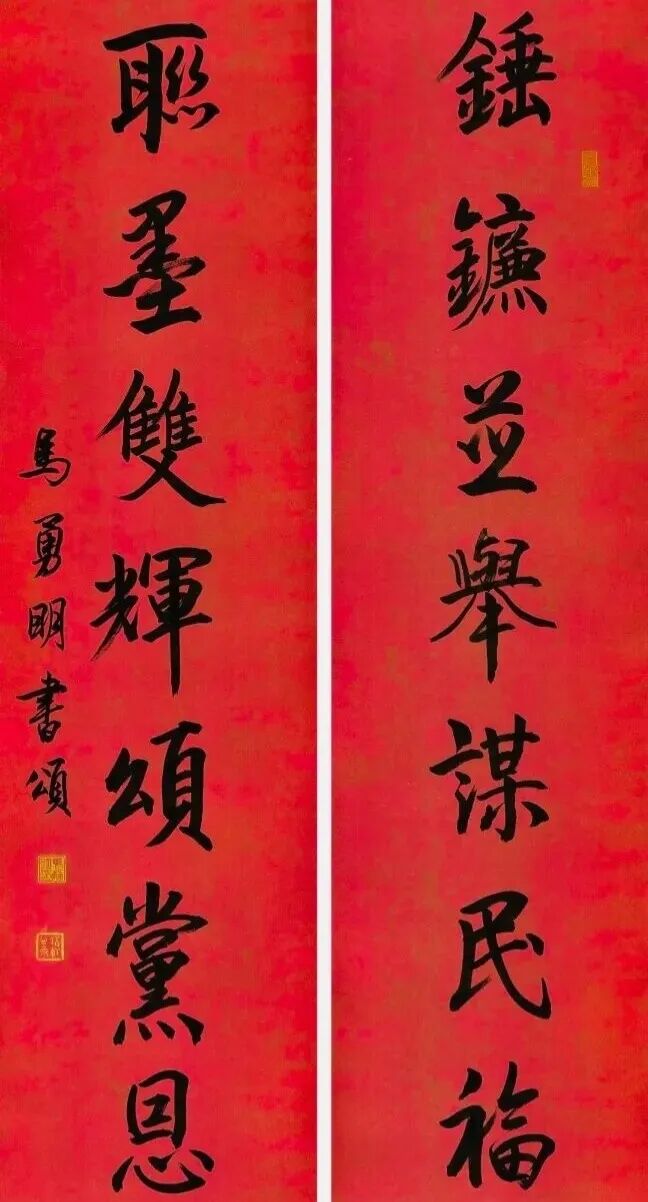 錘鐮並舉謀民福
聯墨雙輝頌黨恩
馬勇明書頌